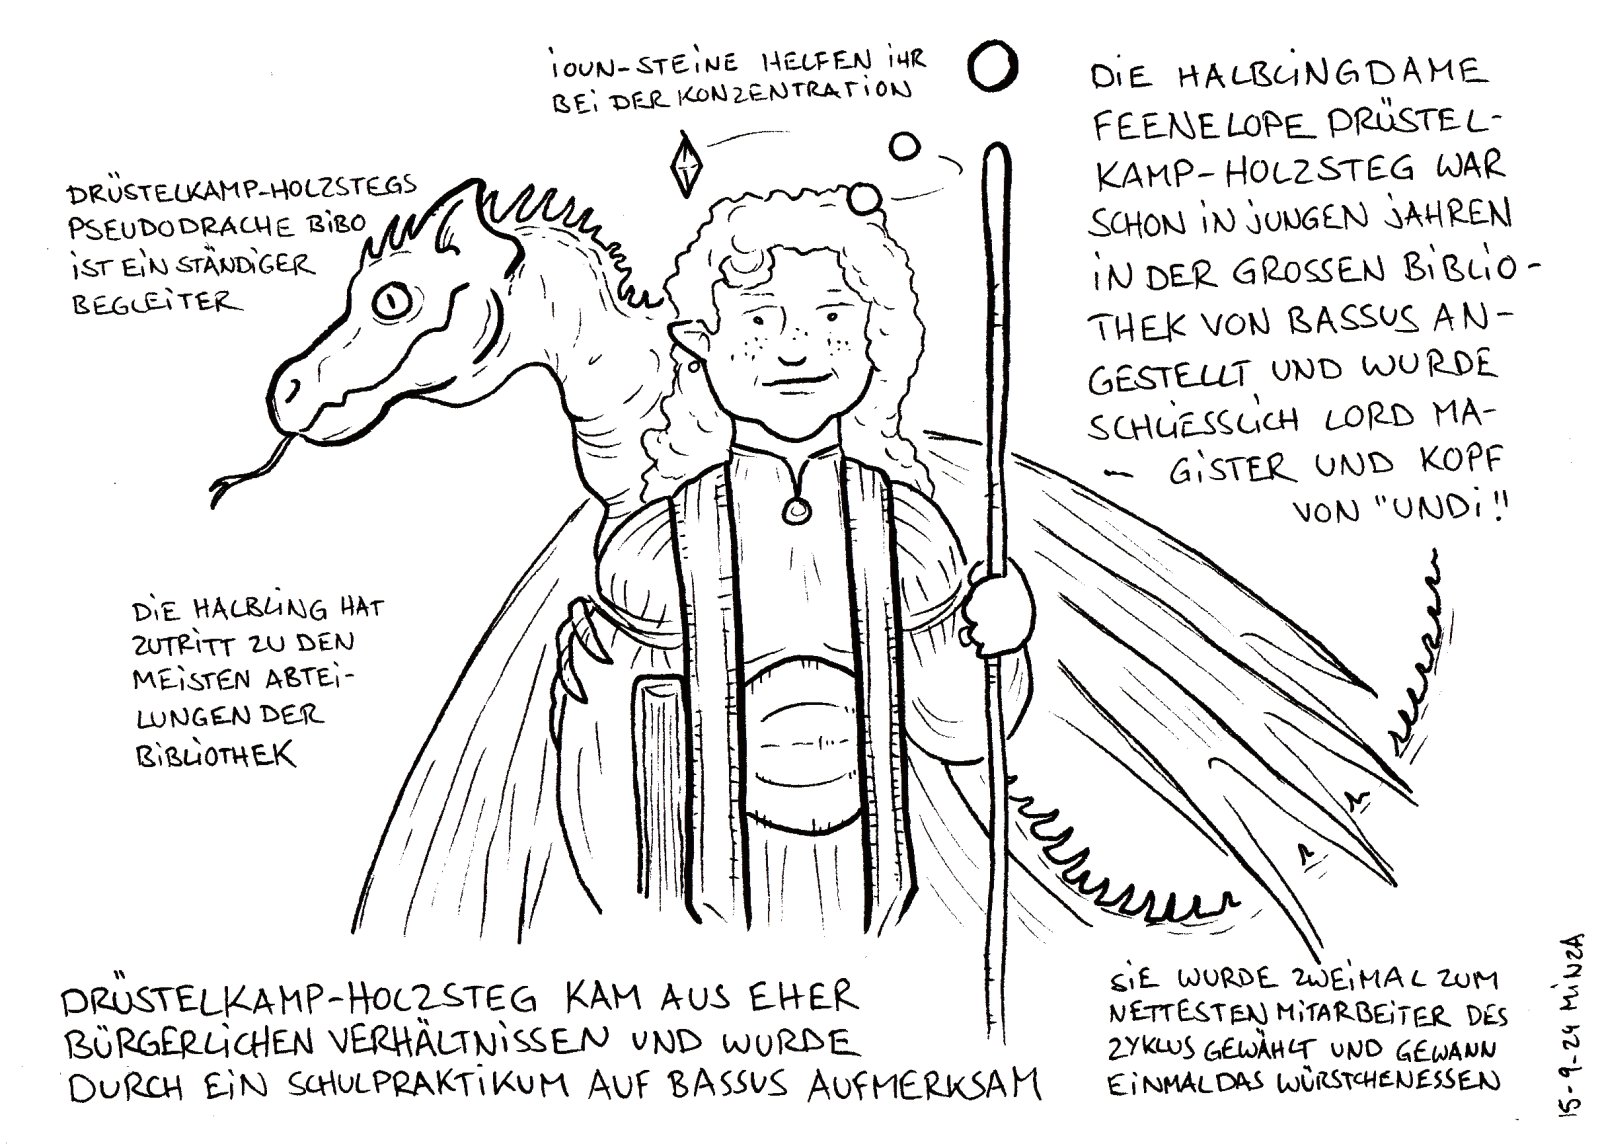 iOUN-STEiNE HELFEN iHR
BEi DER KONZENTRATiON
DiE HALBLiNGDAME
FEENELOPE DRÜSTEL-
KAMP-HOLZSTEG WAR
SCHON iN JUNGEN JAHREN
iN DER GROSSEN BiBLiO-
THEK VON BASSUS AN-
GESTELLT UND WURDE
SCHLiESSLiCH LORD MA-
- GiSTER UND KOPF
VON "UNDi"!
DRÜSTELKAMP-HOLZSTEGS
PSEUDODRACHE BiBO
iST EiN STÄNDiGER
BEGLEiTER
DiE HALBLiNG HAT
ZUTRiTT ZU DEN
MEiSTEN ABTEi-
LUNGEN DER
BiBLiOTHEK
DRÜSTELKAMP-HOLZSTEG KAM AUS EHER
BÜRGERLiCHEN VERHÄLTNiSSEN UND WURDE
DURCH EiN SCHULPRAKTiKUM AUF BASSUS AUFMERKSAM
SiE WURDE ZWEiMAL ZUM
NETTESTEN MiTARBEiTER DES
ZYKLUS GEWÄHLT UND GEWANN
EiNMAL DAS WÜRSTCHENESSEN
15-9-24 MiNZA